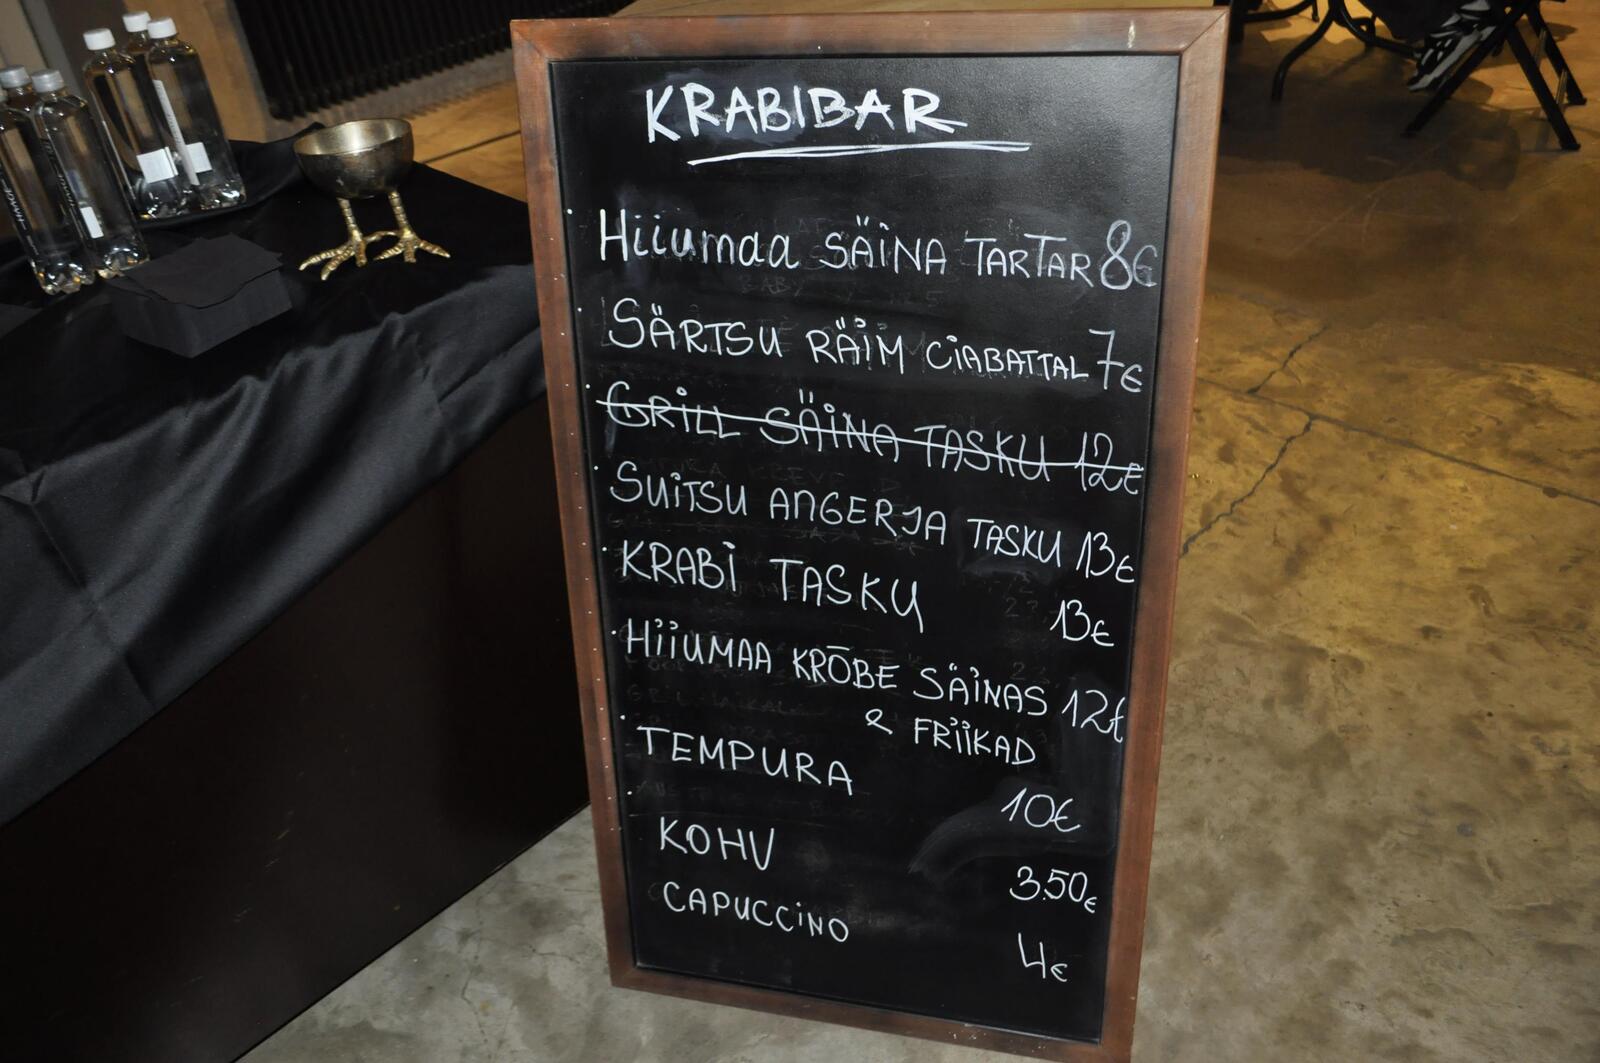 KRABIBAR
Hiiumaa SÄINA TARTAR 8€
SÄRTSU RÄIM CIABATTAL 7€
GRILL SÄINA TASKU 12€
SUITSU ANGERJA TASKU 13€
KRABI TASKU 13€
HIIUMAA KRÕBE SÄINAS 12€
& FRIIKAD
TEMPURA 10€
KOHV 3.50€
CAPUCCINO 4€